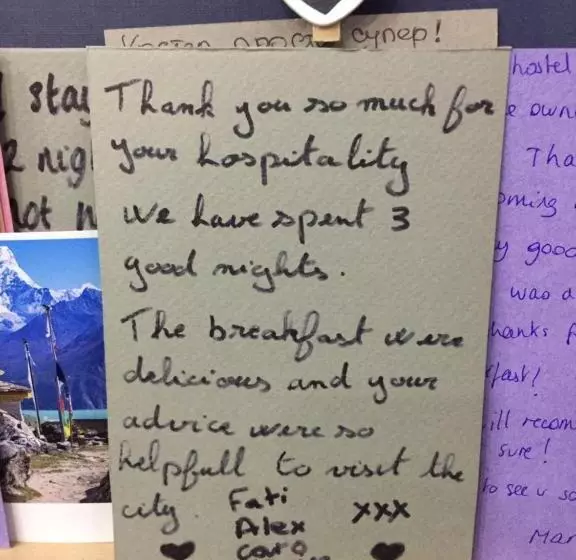 просто супер!
Thank you so much for
your hospitality
We have spent 3
good nights.
The breakfast were
delicious and your
advice were so
helpfull to visit the
city.
Fati
Alex
xxx
stay
2 nig
not
hostel
e own
Tha
oming
y good
was a
hanks f
fast!
ill recom
sure!
to see u so
Mar